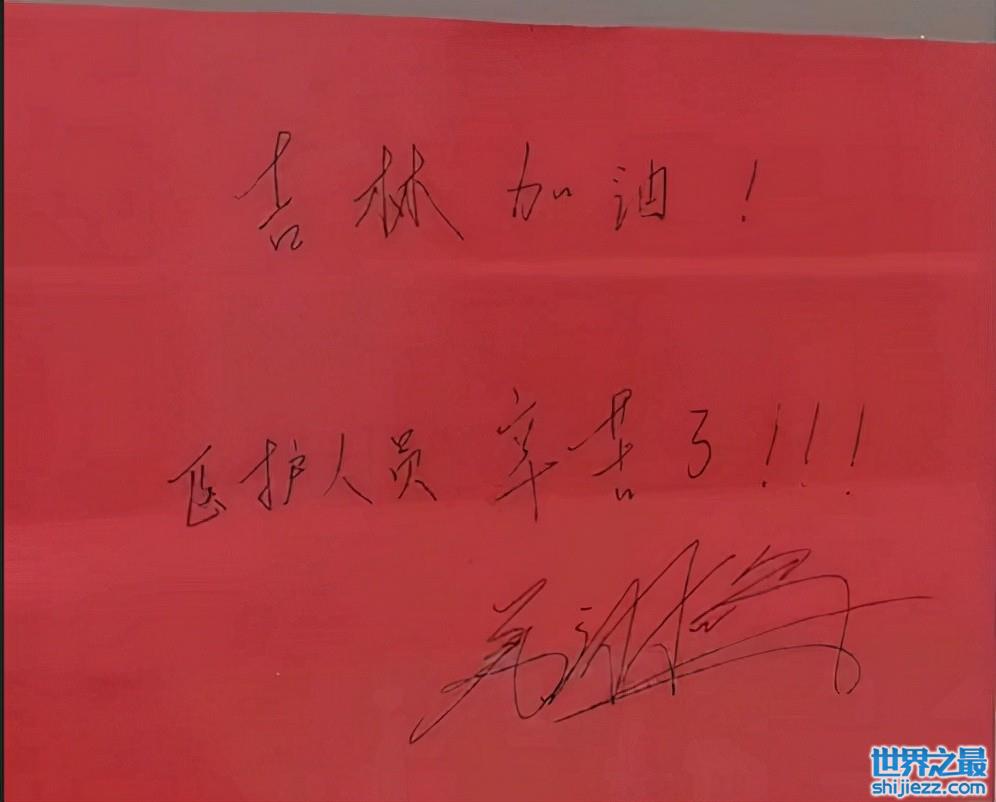 吉林加油！
医护人员辛苦了！！！
世界之最
shijiezz.com